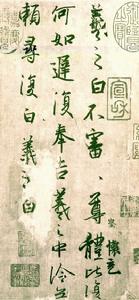 羲之白不審尊體比復
何如遲復奉告羲之中冷無
賴尋復白羲之白
察 懷充